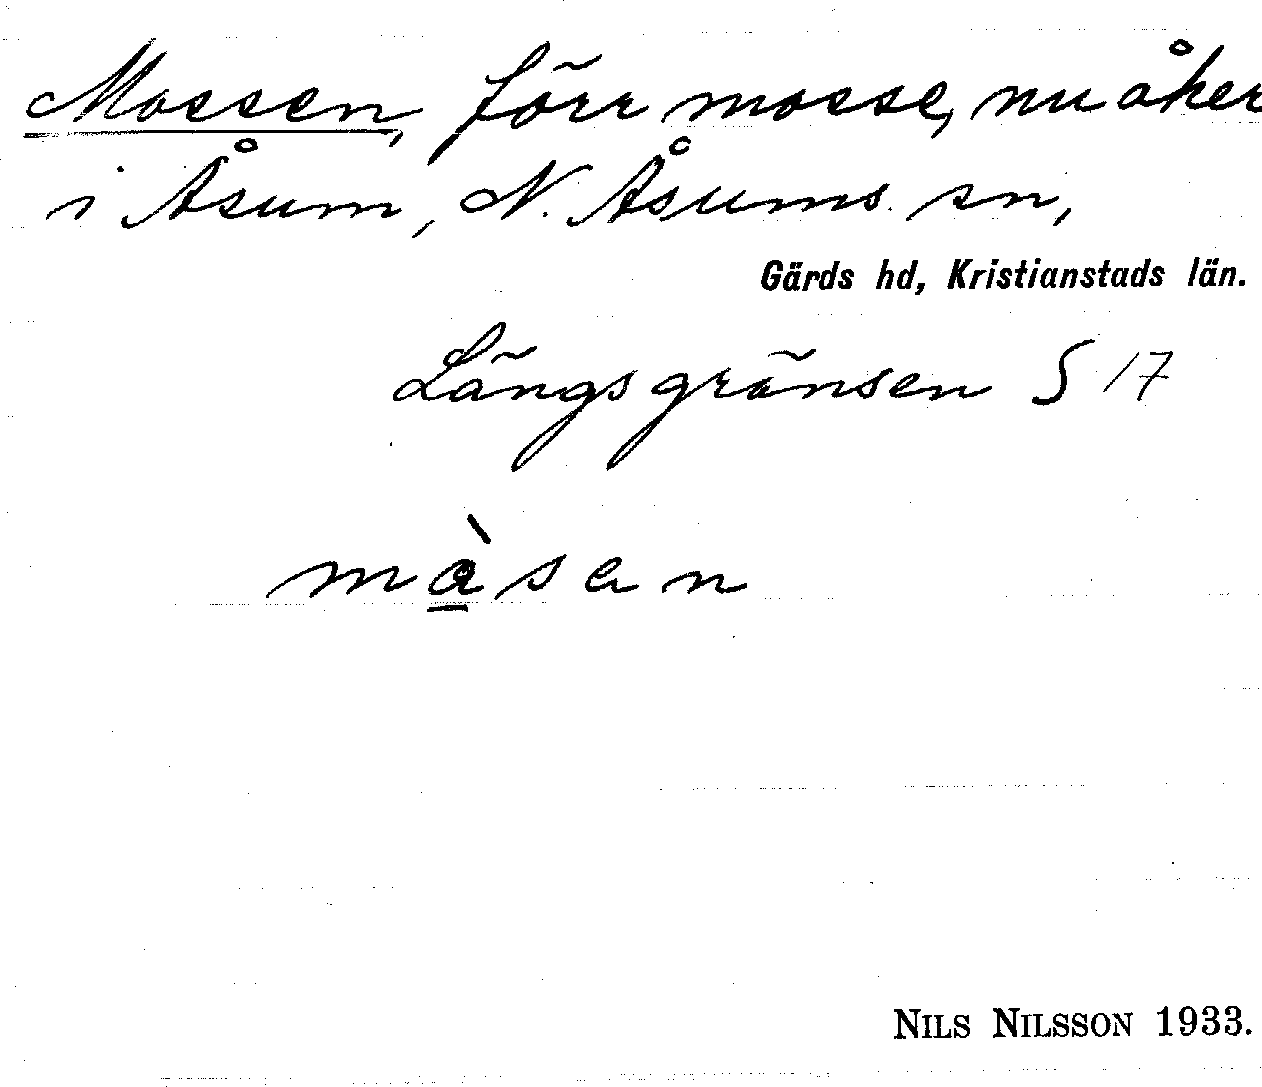 Mossen, förr mosse, nu åker
i Åsum, N. Åsums sn,
Gärds hd, Kristianstads län.
Längs gränsen S 17
màsen
NILS NILSSON 1933.